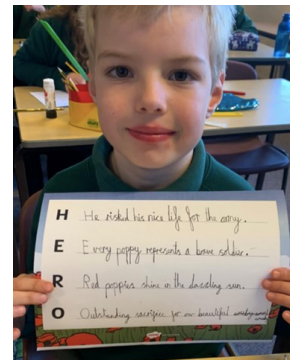 H He risked his nice life for the army.
E Every poppy represents a brave soldier.
R Red poppies shine in the dazzling sun.
O Outstanding sacrifice for our beautiful